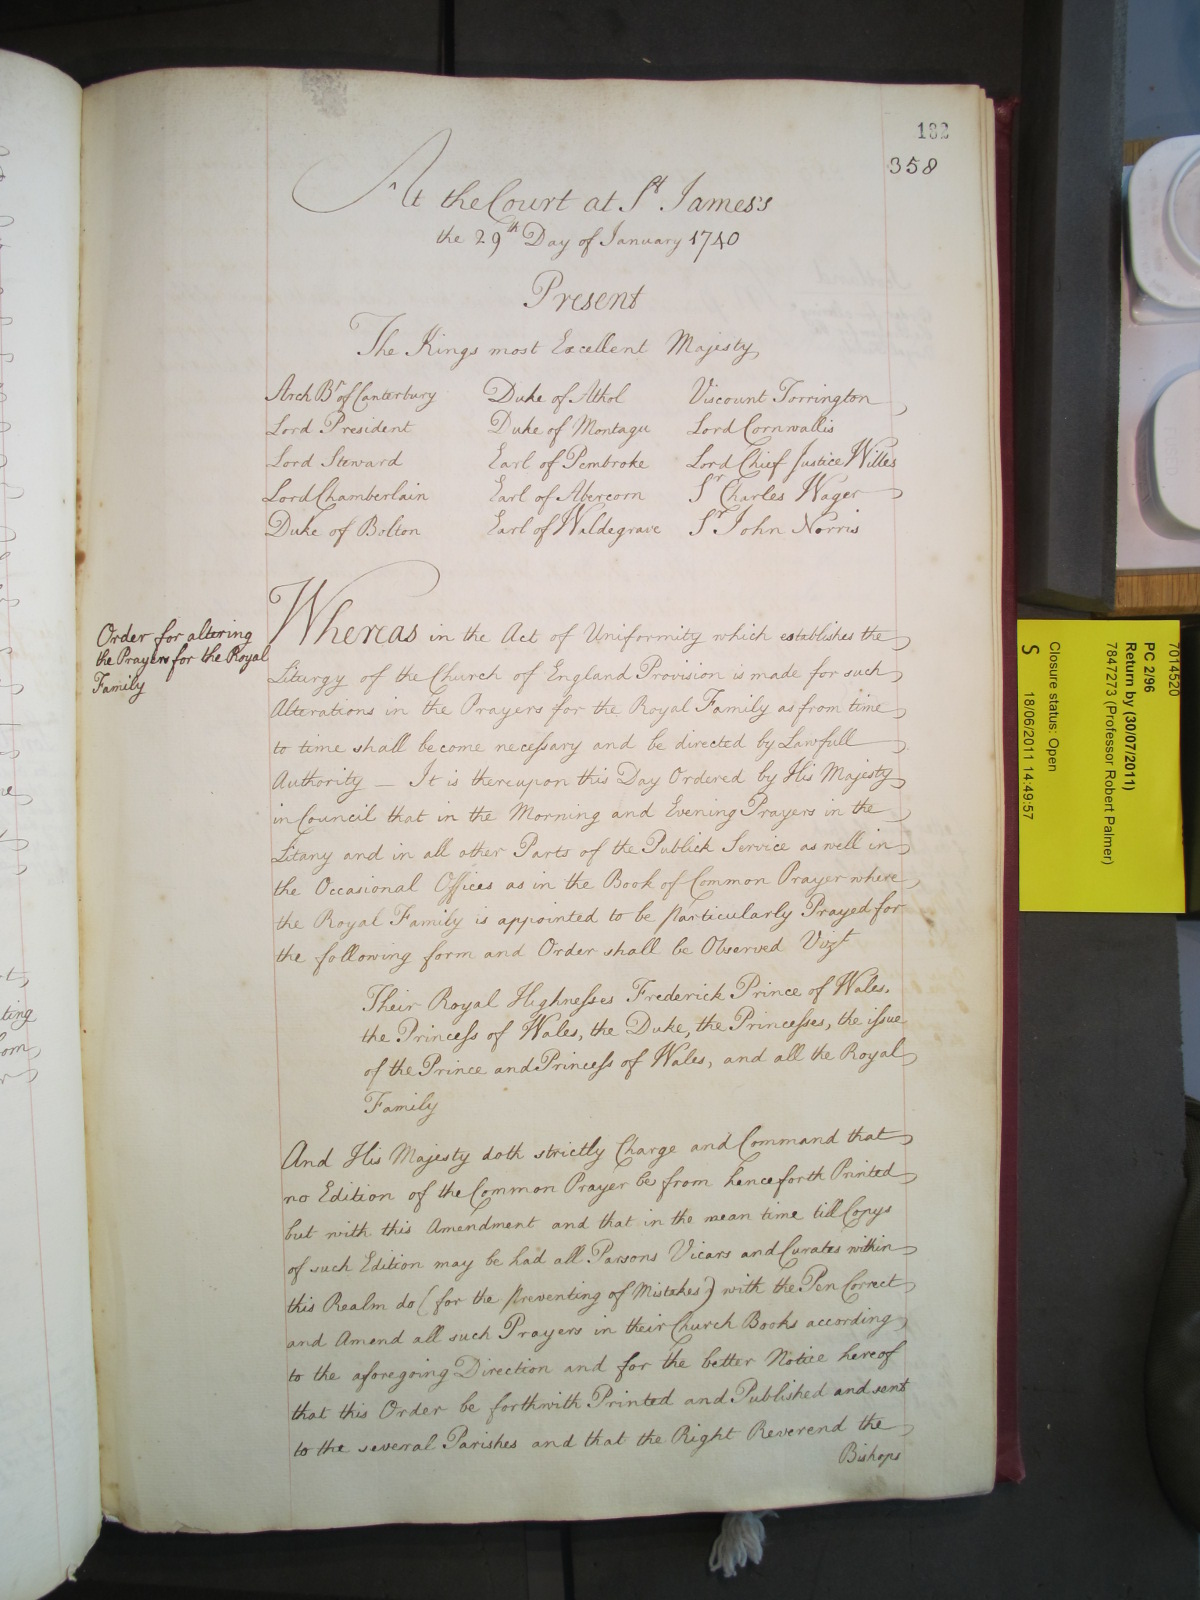 182
358
At the Court at St James's
the 29th Day of January 1740
Present
The Kings most Excellent Majesty
Arch Bp of Canterbury Duke of Athol Viscount Torrington
Lord President Duke of Montagu Lord Cornwallis
Lord Steward Earl of Pembroke Lord Chief Justice Willes
Lord Chamberlain Earl of Abercorn Sr Charles Wager
Duke of Bolton Earl of Waldegrave Sr John Norris
Order for altering
the Prayers for the Royal
Family
Whereas in the Act of Uniformity which establishes the
Liturgy of the Church of England Provision is made for such
Alterations in the Prayers for the Royal Family as from time
to time shall become necessary and be directed by Lawfull
Authority — It is thereupon this Day Ordered by His Majesty
in Council that in the Morning and Evening Prayers in the
Litany and in all other Parts of the Publick Service as well in
the Occasional Offices as in the Book of Common Prayer where
the Royal Family is appointed to be particularly Prayed for
the following form and Order shall be Observed Vizt
Their Royal Highnesses Frederick Prince of Wales,
the Princess of Wales, the Duke, the Princesses, the issue
of the Prince and Princess of Wales, and all the Royal
Family
And His Majesty doth strictly Charge and Command that
no Edition of the Common Prayer be from henceforth Printed
but with this Amendment and that in the mean time till Copys
of such Edition may be had all Parsons Vicars and Curates within
this Realm do (for the preventing of Mistakes) with the Pen Correct
and Amend all such Prayers in their Church Books according
to the aforegoing Direction and for the better Notice hereof
that this Order be forthwith Printed and Published and sent
to the several Parishes and that the Right Reverend the
Bishops
7014520
PC 2/96
Return by (30/07/2011)
7847273 (Professor Robert Palmer)
Closure status: Open
S 18/06/2011 14:49:57